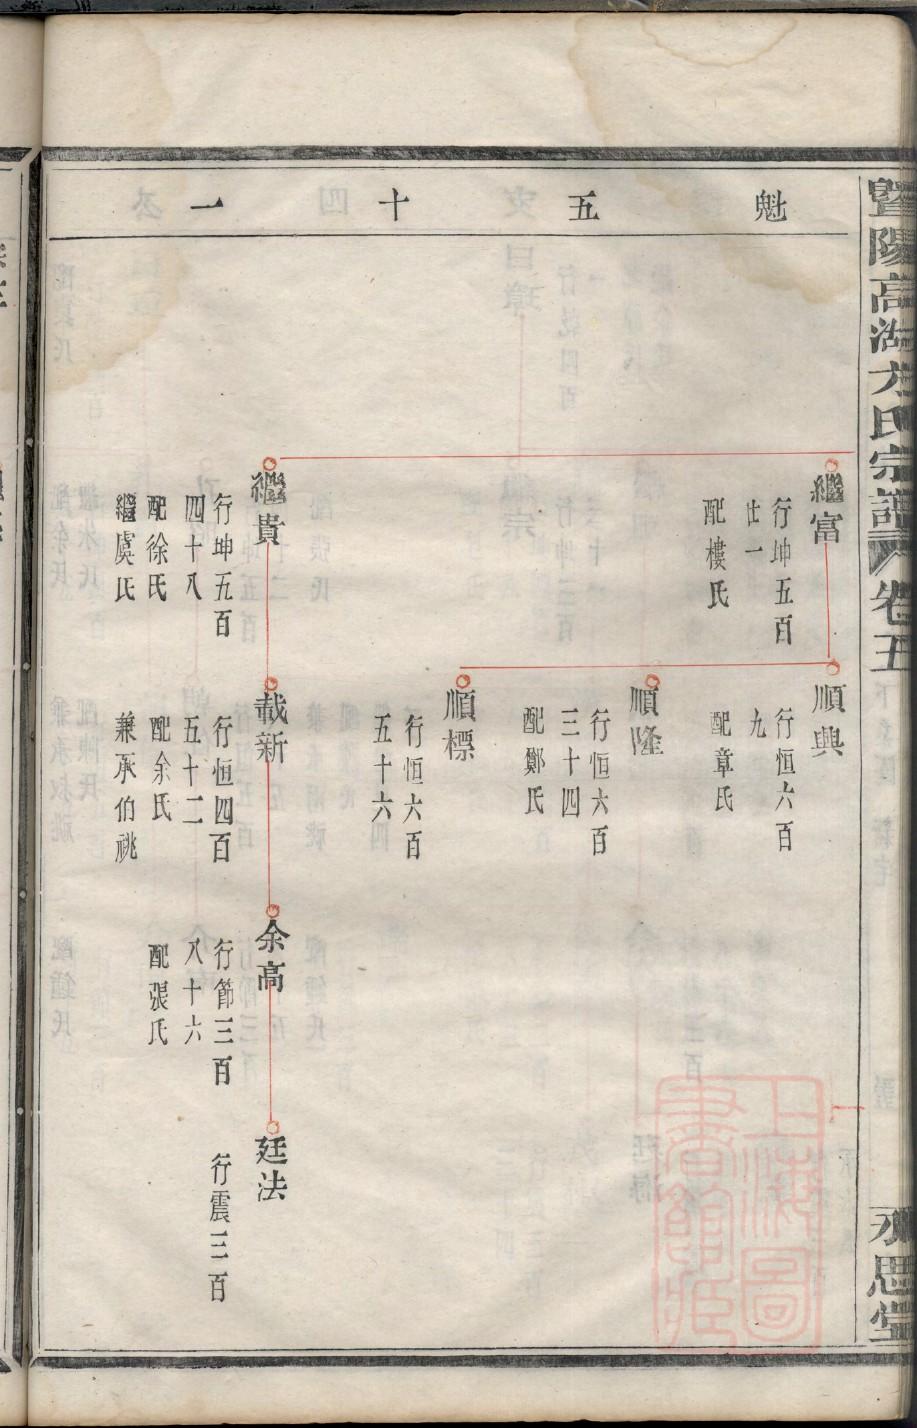 暨陽高湖方氏宗譜 卷五
永思堂
魁五十一
繼富
行坤五百
廿一
配樓氏
繼貴
行坤五百
四十八
配徐氏
繼虞氏
順興
行恒六百
九
配章氏
順隆
行恒六百
三十四
配鄭氏
順標
行恒六百
五十六
載新
行恒四百
五十二
配余氏
兼承伯祧
余高
行節三百
八十六
配張氏
廷法
行震三百